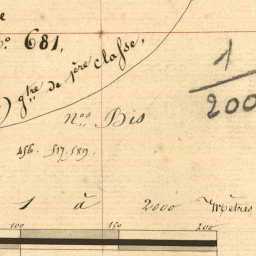 e
No 681.
gtre de 1ère classe,
1
200
nos Bis
456. 517. 589.
1 à 2000 Mètres
100 150 200